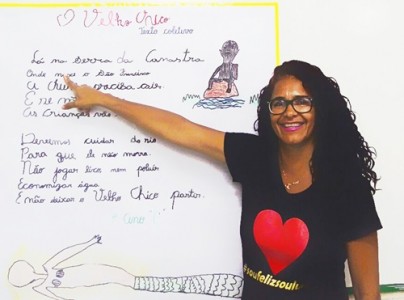 Velho Chico
Texto coletivo
Lá na Serra da Canastra
Onde nasce o São Francisco
A chuva precisa cair.
E se n
As crianças vão
Devemos cuidar do rio
Para que ele não morra.
Não jogar lixo, nem poluir
Economizar água
E não deixar o Velho Chico partir.
#soufelizsoul